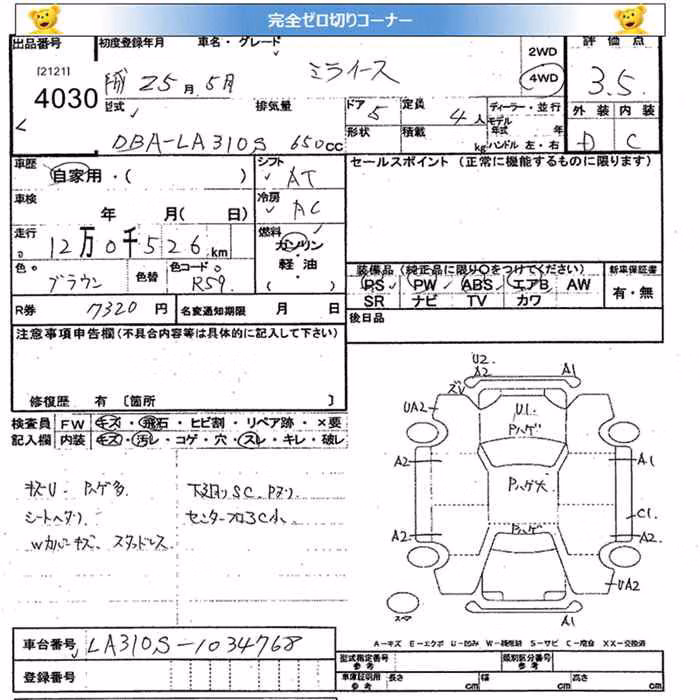 完全ゼロ切りコーナー
出品番号 初度登録年月 車名・グレード 2WD 評価点
[2121] 25月 5月 ミライース 4WD 3.5
4030 型式 排気量 ドア 5 定員 4人 ディーラー・並行 外装 内装
DBA-LA310S 650cc 形状 積載 kg モデル年式 年 ハンドル 左・右 D C
車歴 自家用・( ) シフト AT セールスポイント (正常に機能するものに限ります)
車検 年 月( 日) 冷房 AC
走行 12万0千526km 燃料 ガソリン
色 ブラウン 色替 色コード R59 軽油 ( )
装備品 (純正品に限り○をつけてください) 新車保証書
PS PW ABS エアB AW 有・無
SR ナビ TV カワ
R券 7320円 名変通知期限 月 日 後日品
注意事項申告欄(不具合内容等は具体的に記入して下さい)
修復歴 有 〔箇所 〕
検査員 FW キズ・飛石・ヒビ割・リペア跡・×要
記入欄 内装 キズ・汚レ・コゲ・穴・スレ・キレ・破レ
キズU Pハゲ多 下廻りSC Pヌリ
シートヘタリ センターフロアC小
Wカバーキズ スタッドレス
U2
A2 A1
ズU
UA2 U1
Pハゲ
A2 A1
Pハゲ大
C1
Pハゲ
A2 A2
UA2
スペア A1
A-キズ E-エクボ U-凹み W-補修跡 S-サビ C-腐食 XX-交換済
車台番号 LA310S-1034768
型式指定番号 参考 類別区分番号 参考
登録番号 車庫証明用 参考 長さ cm 幅 cm 高さ cm